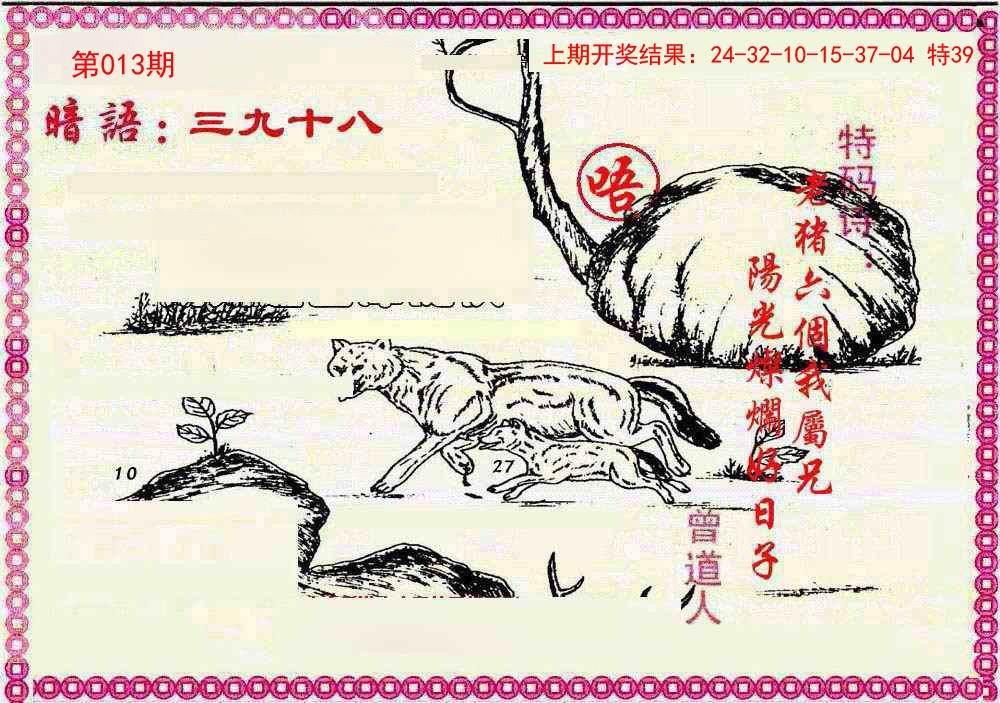 上期开奖结果：24-32-10-15-37-04 特39
第013期
暗語：三九十八
唔
特码诗：
老猪六個我屬兄
陽光燦爛好日子
曾道人
10
27